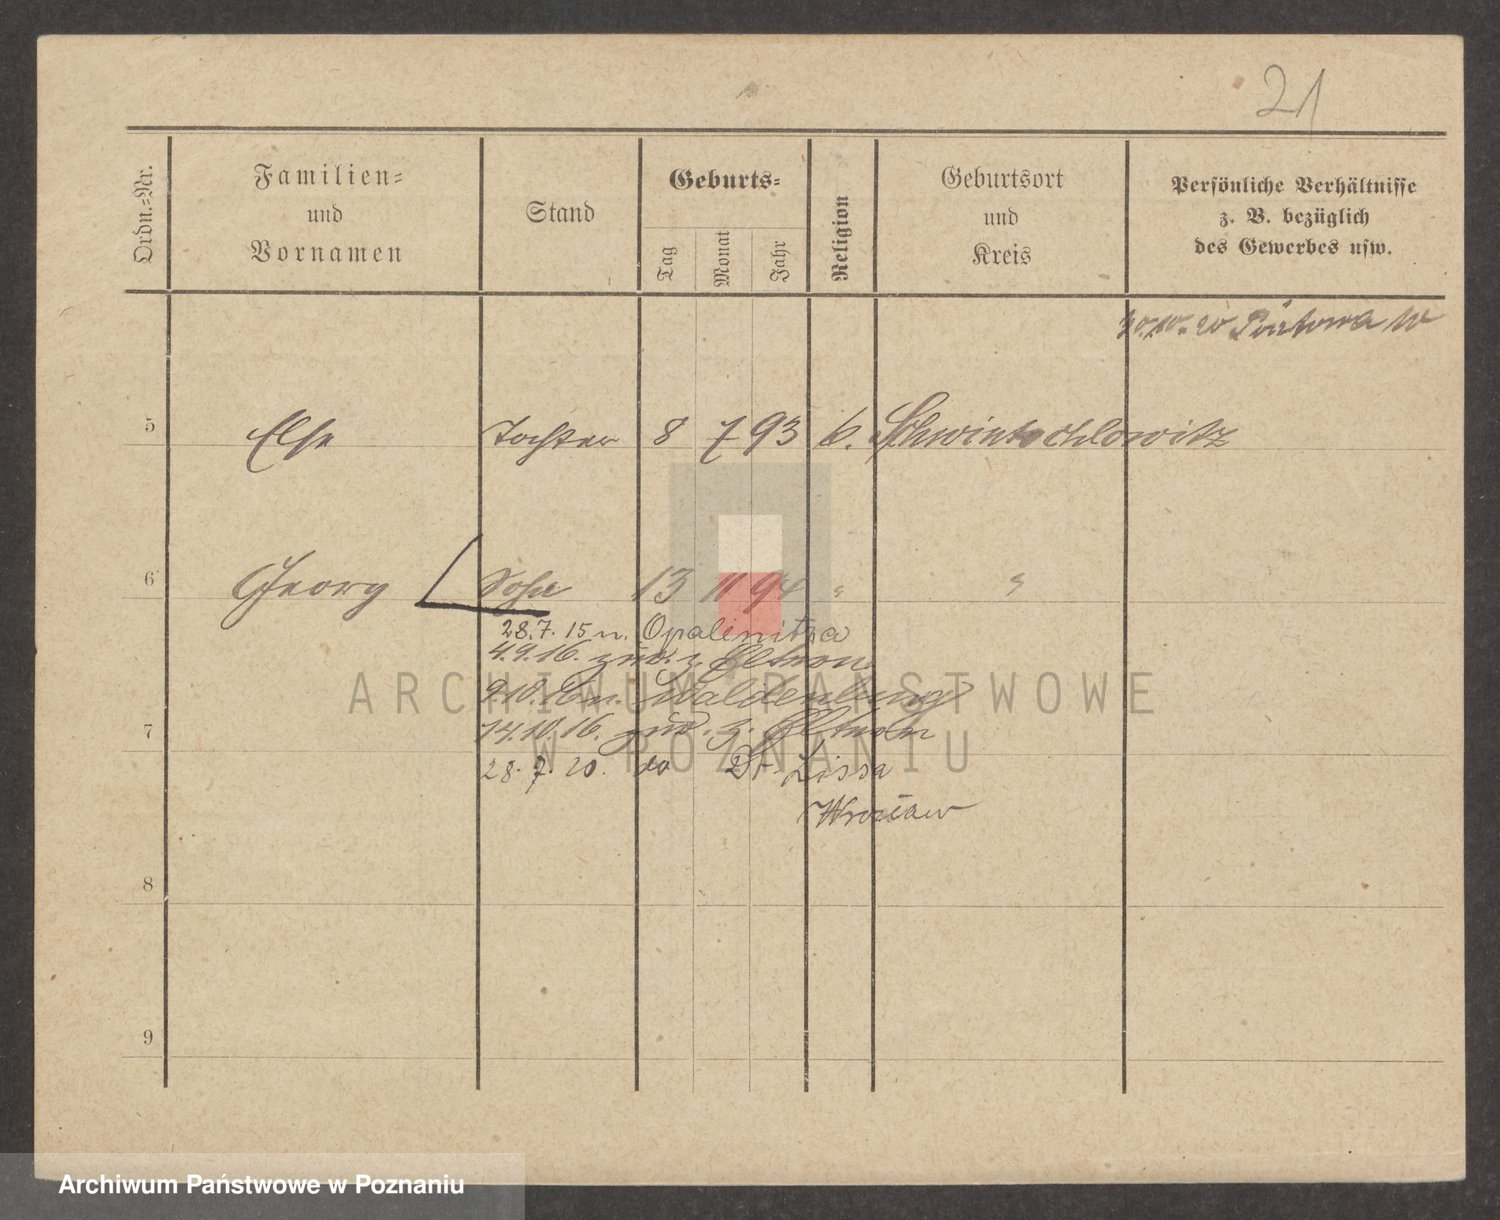 21
Ordn.=Nr.
Familien=
und
Vornamen
Stand
Geburts=
Tag
Monat
Jahr
Religion
Geburtsort
und
Kreis
Persönliche Verhältnisse
z. B. bezüglich
des Gewerbes usw.
5 Else Tochter 8 7 93 6. Schwintochlowitz
6 Georg Sohn 13 11 94 " "
28.7.15 n. Opalenitza
4.9.16. zur. z. Eltern
9.10.16 n. Waldenburg
7
14.10.16. zur. z. Eltern
28.7.20. do Dt Lissa
Wrocław
8
9
ARCHIWUM PAŃSTWOWE
W POZNANIU
Archiwum Państwowe w Poznaniu